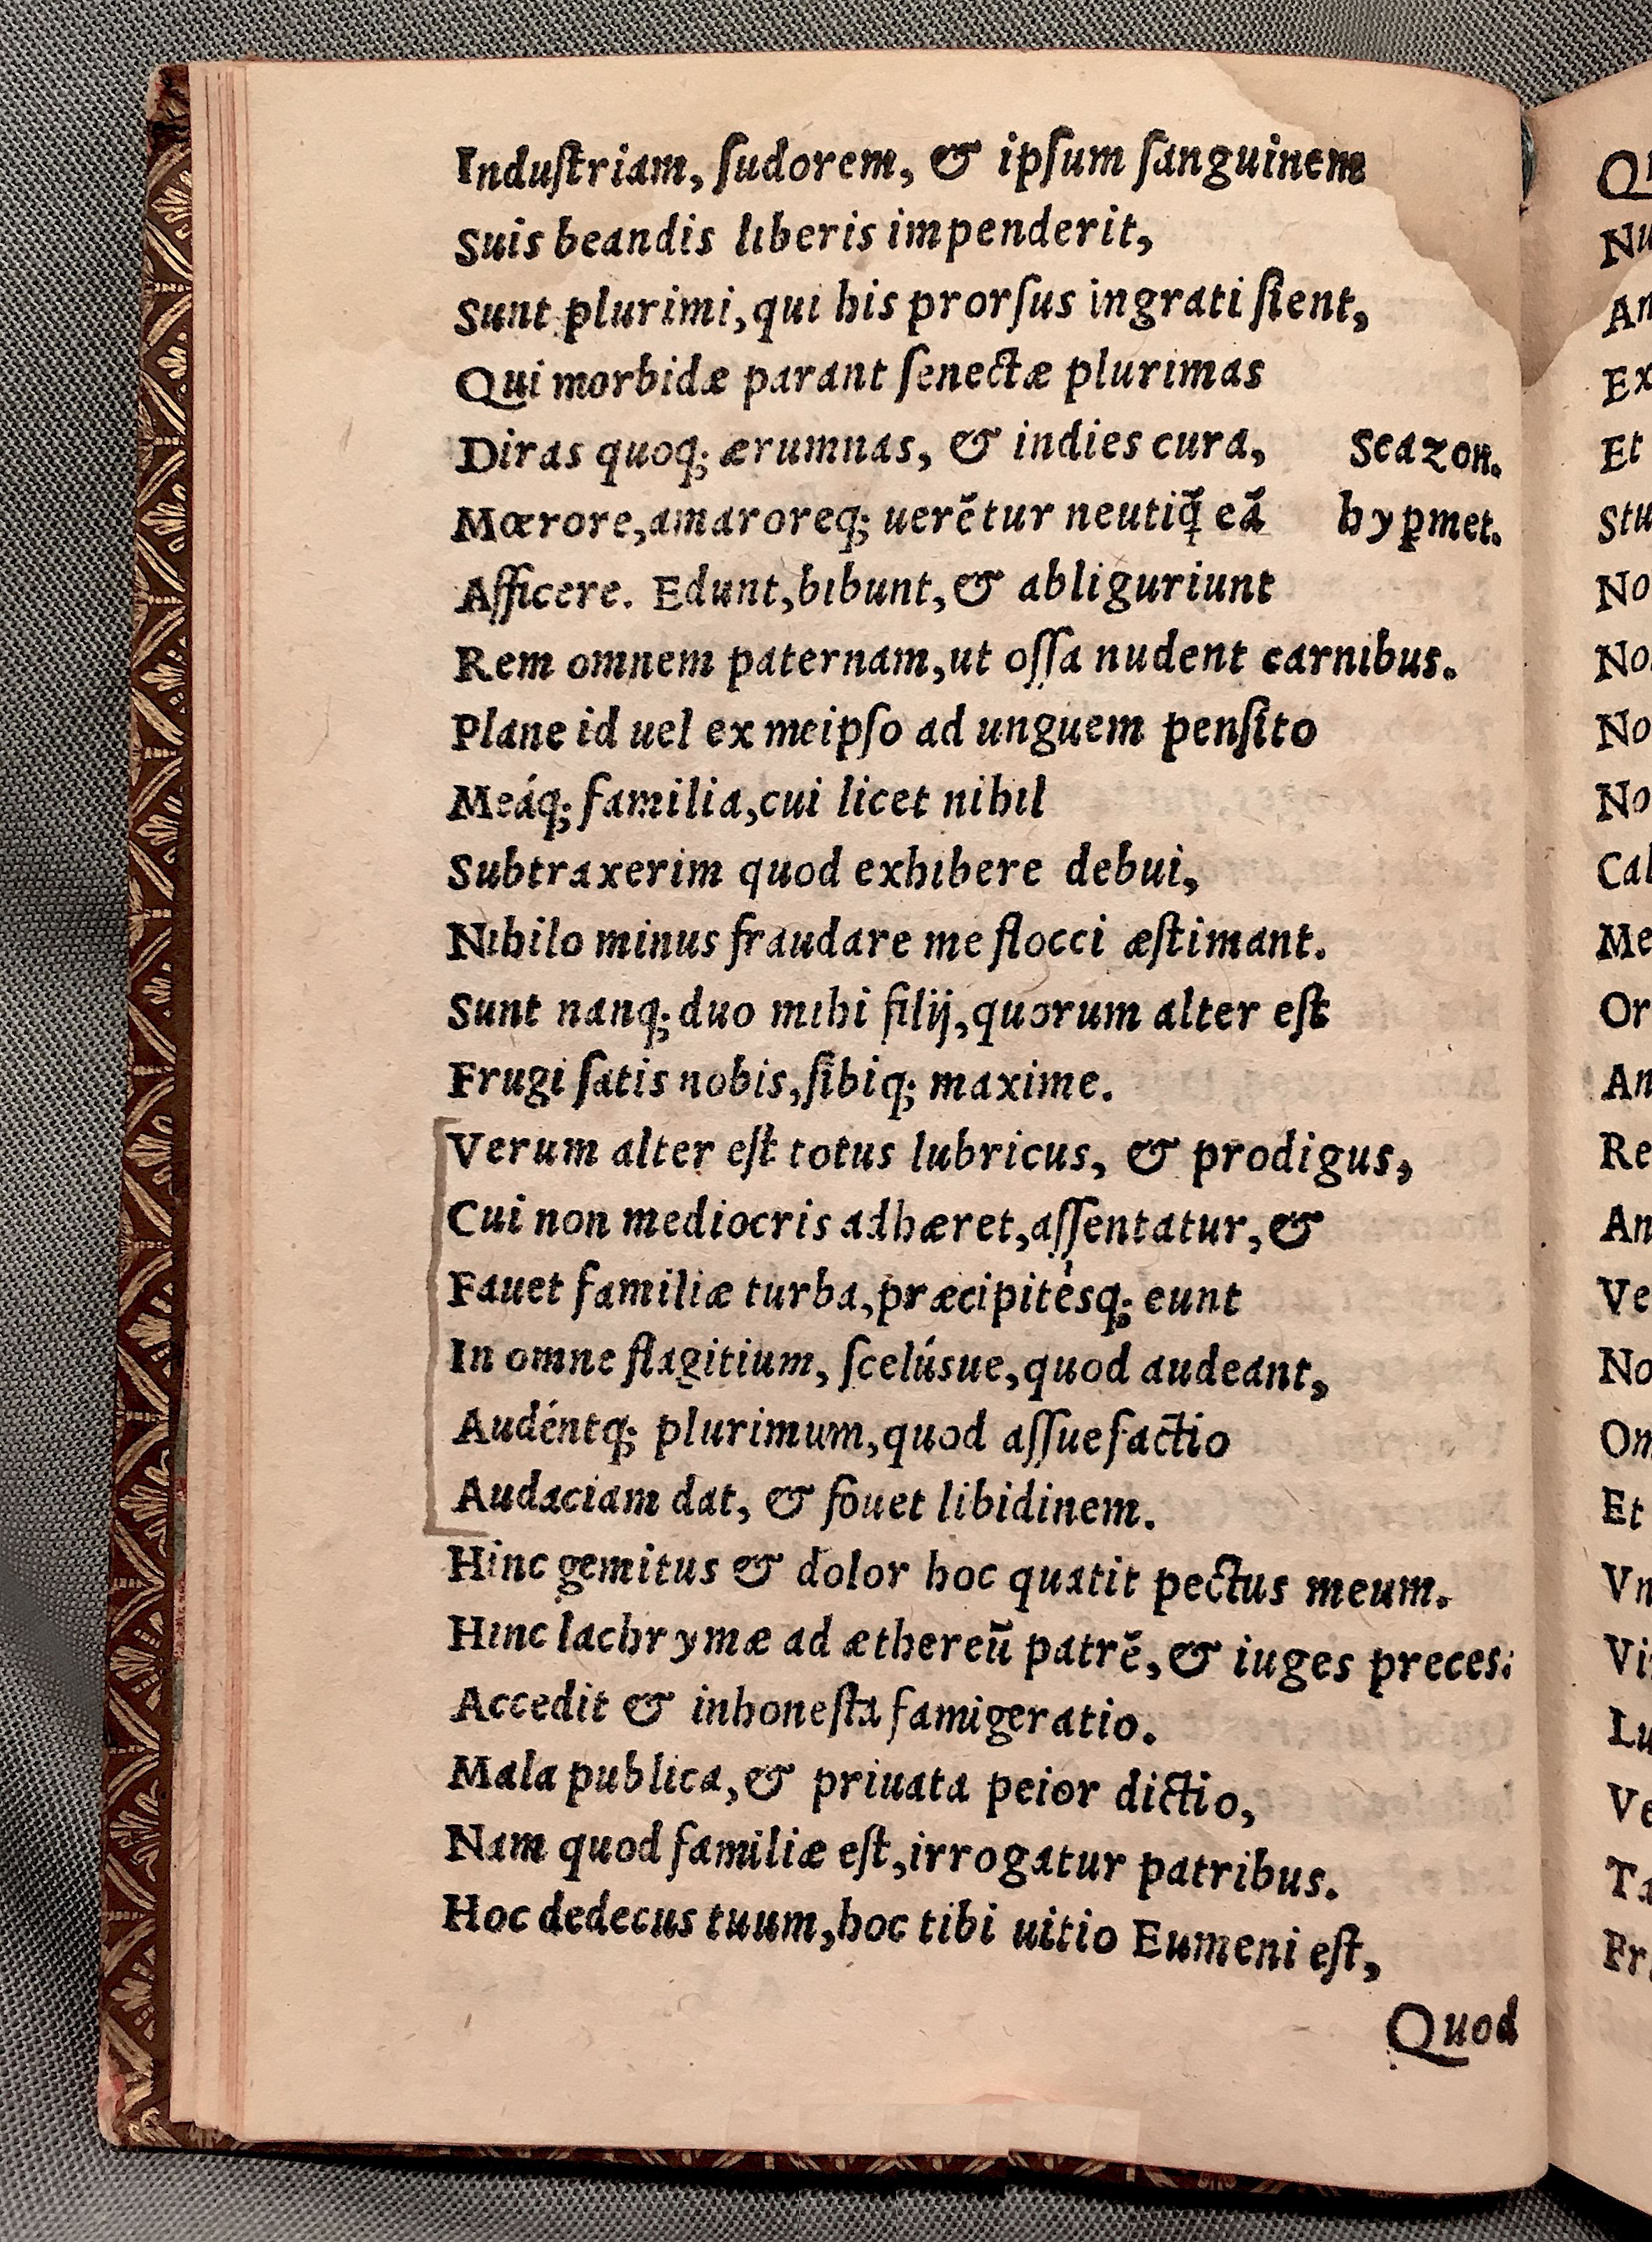 Induſtriam, ſudorem, & ipſum ſanguinem
Suis beandis liberis impenderit,
Sunt plurimi, qui his prorſus ingrati ſient,
Qui morbidæ parant ſenectæ plurimas
Diras quoq; ærumnas, & indies cura, Scazon.
Mœrore, amaroreq; uerẽtur neutiq̃ eã hyꝑmet.
Afficere. Edunt, bibunt, & abliguriunt
Rem omnem paternam, ut oſſa nudent carnibus.
Plane id uel ex meipſo ad unguem penſito
Meáq; familia, cui licet nihil
Subtraxerim quod exhibere debui,
Nihilo minus fraudare me flocci æſtimant.
Sunt nanq; duo mihi filij, quorum alter eſt
Frugi ſatis nobis, ſibiq; maxime.
Verum alter eſt totus lubricus, & prodigus,
Cui non mediocris adhæret, aſſentatur, &
Fauet familiæ turba, præcipitésq; eunt
In omne flagitium, ſcelúsue, quod audeant,
Audéntq; plurimum, quod aſſuefactio
Audaciam dat, & fouet libidinem.
Hinc gemitus & dolor hoc quatit pectus meum.
Hinc lachrymæ ad æthereũ patrẽ, & iuges preces:
Accedit & inhoneſta famigeratio.
Mala publica, & priuata peior dictio,
Nam quod familiæ eſt, irrogatur patribus.
Hoc dedecus tuum, hoc tibi uitio Eumeni eſt,
Quod
Et
No
No
No
No
Me
Or
An
Re
An
Ve
No
Om
Et